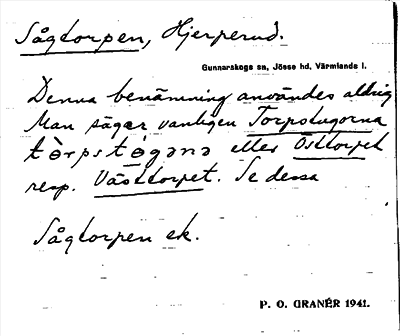 Sågtorpen, Hjerperud.
Gunnarskogs sn, Jösse hd, Värmlands l.
Denna benämning användes aldrig
Man säger vanligen Torpstugorna
tòrpstøgənə eller Östtorpet
resp. Västtorpet. Se dessa
Sågtorpen ek.
P. O. GRANÉR 1941.